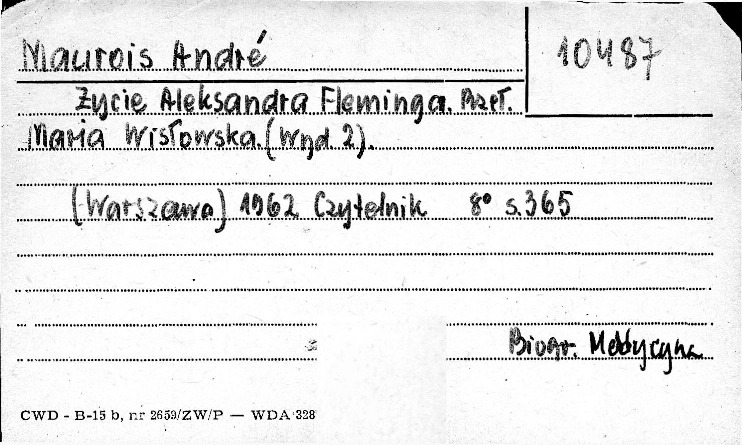 Maurois André
10487
Życie Aleksandra Fleminga. Przeł.
Maria Wisłowska. (Wyd. 2).
(Warszawa) 1962 Czytelnik 8° s. 365
Biogr. Medycyna
CWD - B-15 b, nr 2659/ZW/P — WDA 328